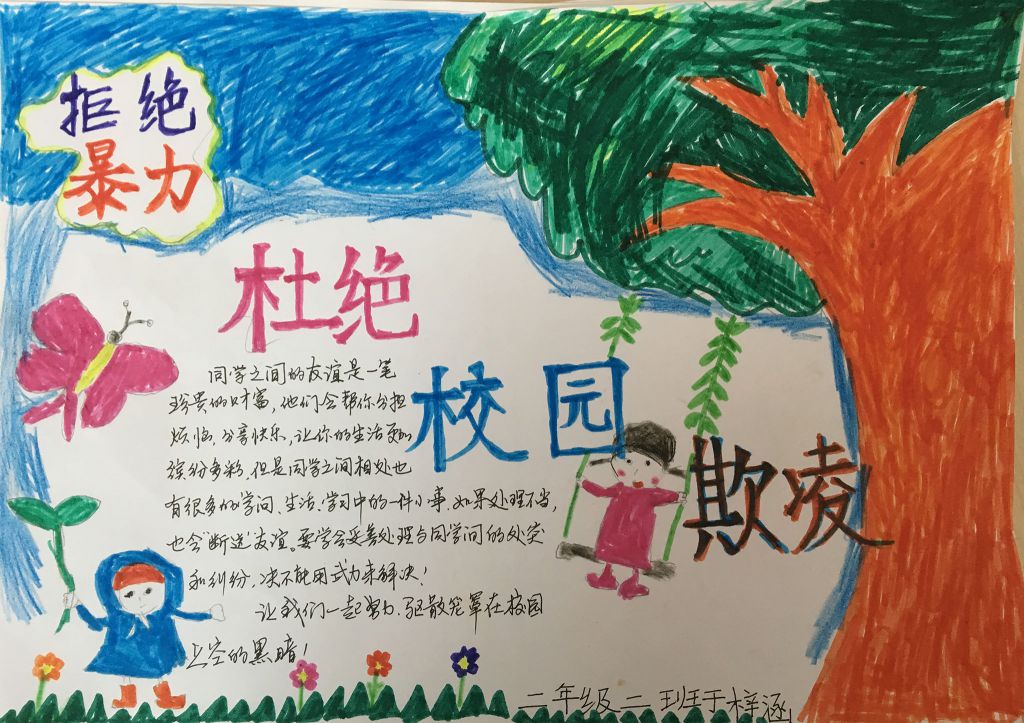 拒绝
暴力
杜绝
校园
欺凌
同学之间的友谊是一笔
珍贵的财富,他们会帮你分担
烦恼,分享快乐,让你的生活更加
缤纷多彩,但是同学之间相处也
有很多的学问、生活、学习中的一件小事,如果处理不当,
也会“断送”友谊。要学会妥善处理与同学间的冲突
和纠纷,决不能用武力来解决!
让我们一起努力、驱散笼罩在校园
上空的黑暗!
二年级二班于梓涵